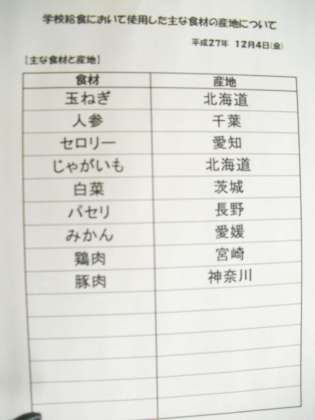 学校給食において使用した主な食材の産地について
平成27年 12月4日(金)
[主な食材と産地]
食材 産地
玉ねぎ 北海道
人参 千葉
セロリー 愛知
じゃがいも 北海道
白菜 茨城
パセリ 長野
みかん 愛媛
鶏肉 宮崎
豚肉 神奈川